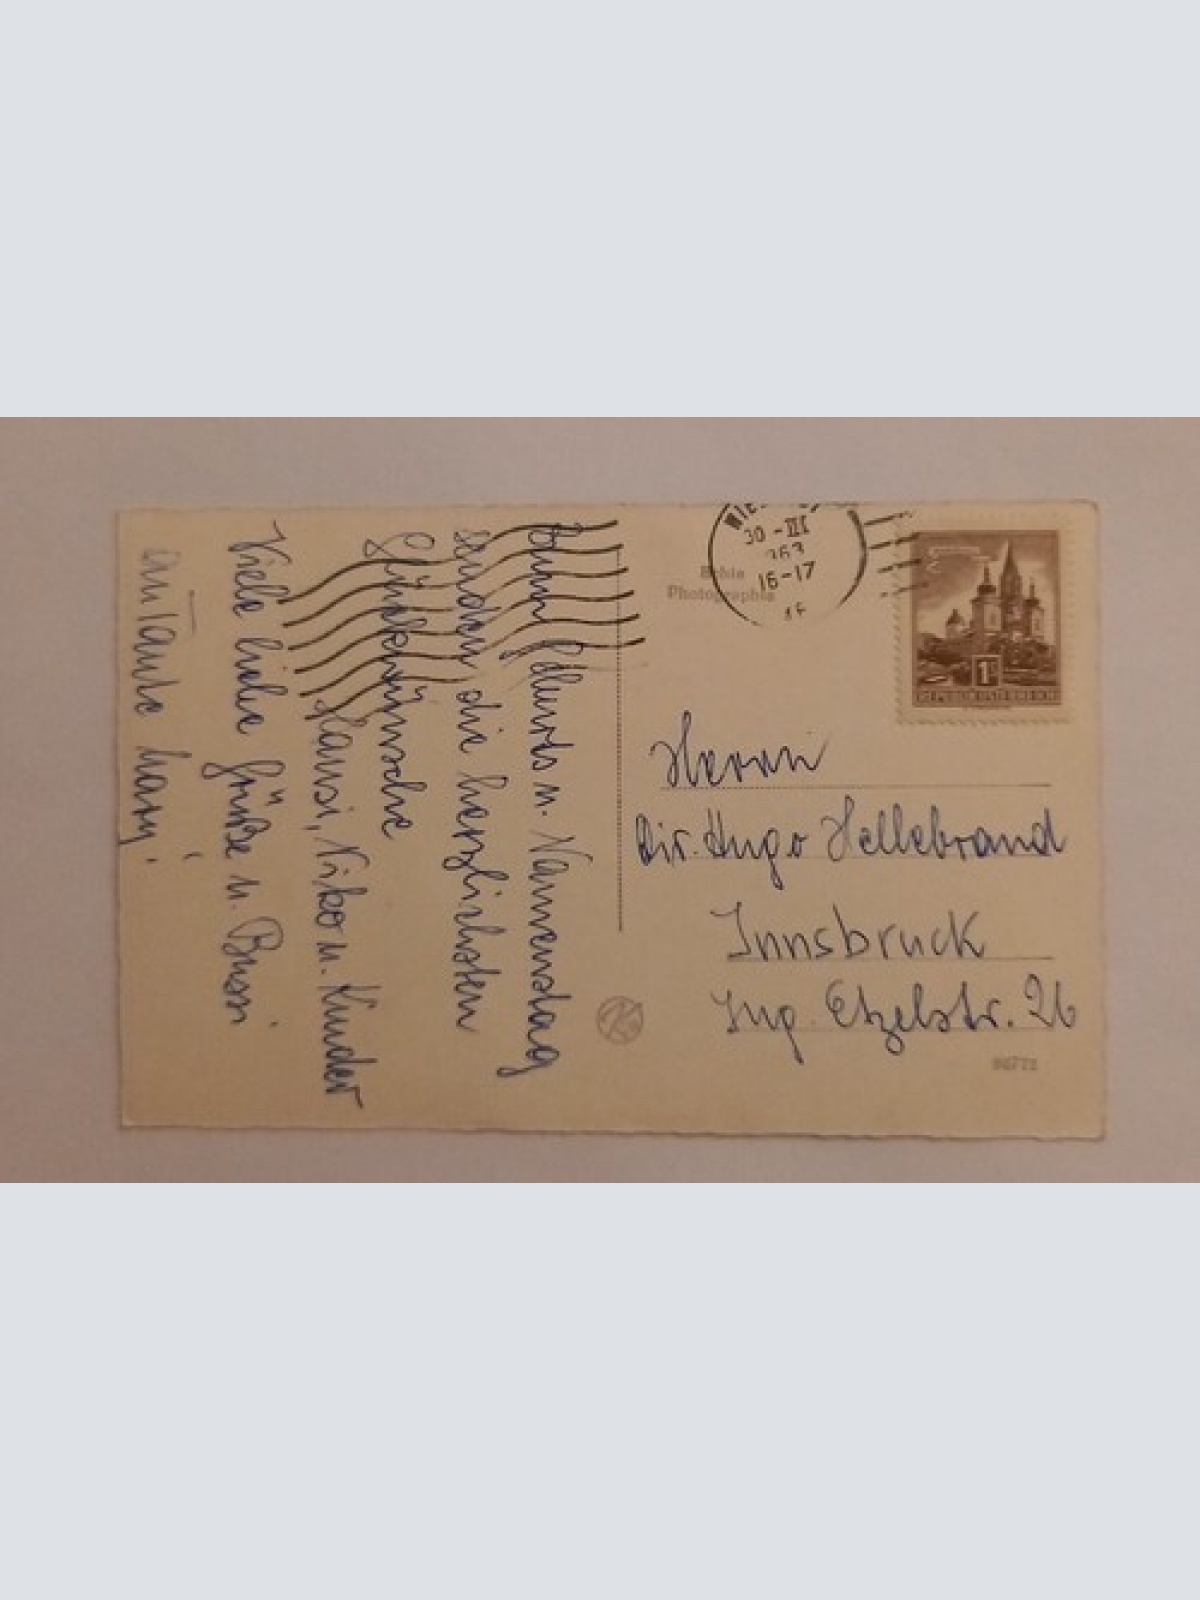 Zum Geburts u. Namenstag
senden die herzlichsten
Glückwünsche
Hansi, Niko u. Kinder
Viele liebe Grüße u. Bussi
an Tante
Echte
Photographie
30-III
963
16-17
1
REPUBLIK ÖSTERREICH
Herrn
Dir. Hugo Hellebrand
Innsbruck
Ing. Etzelstr. 26